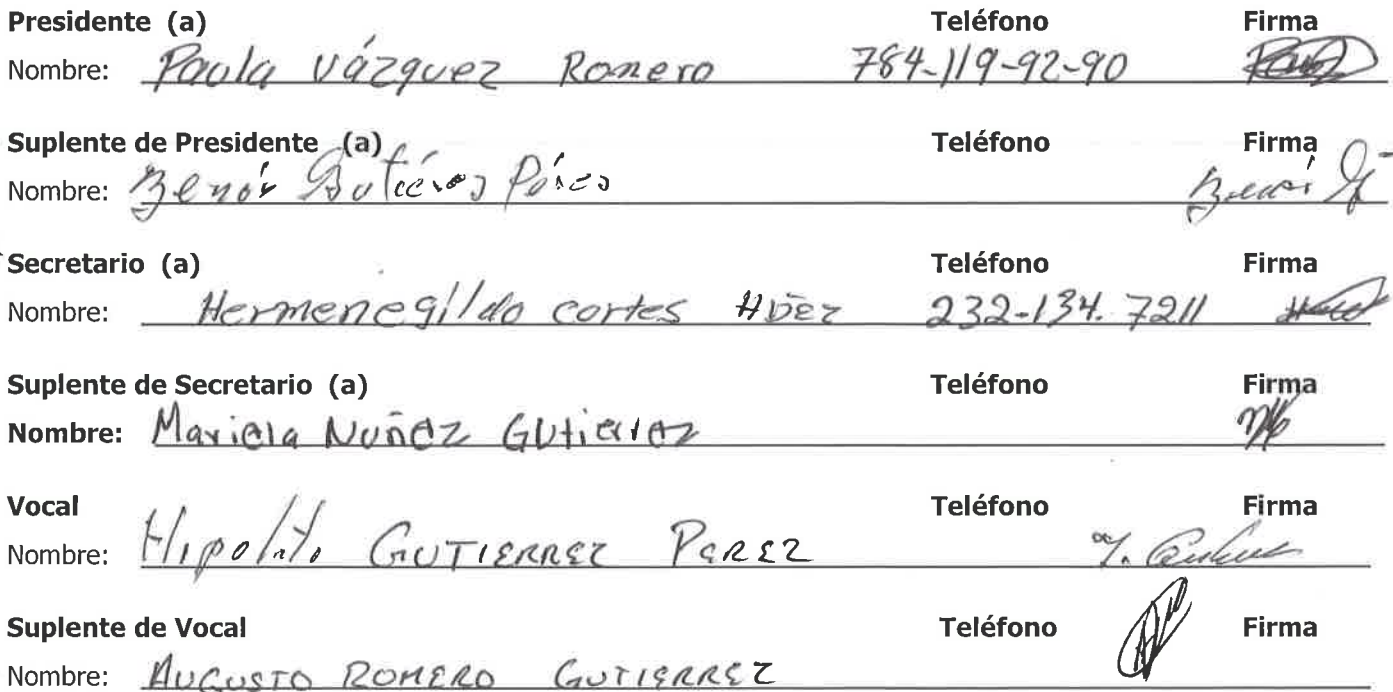 Presidente (a) Teléfono Firma
Nombre: Paula Vázquez Romero 784-119-92-90
Suplente de Presidente (a) Teléfono Firma
Nombre:
Secretario (a) Teléfono Firma
Nombre: Hermenegildo cortes HDEZ 232-134.7211
Suplente de Secretario (a) Teléfono Firma
Nombre: Mariela Nuñez Gutierrez
Vocal Teléfono Firma
Nombre: Hipolito GUTIERREZ PEREZ
Suplente de Vocal Teléfono Firma
Nombre: AUGUSTO ROMERO GUTIERREZ